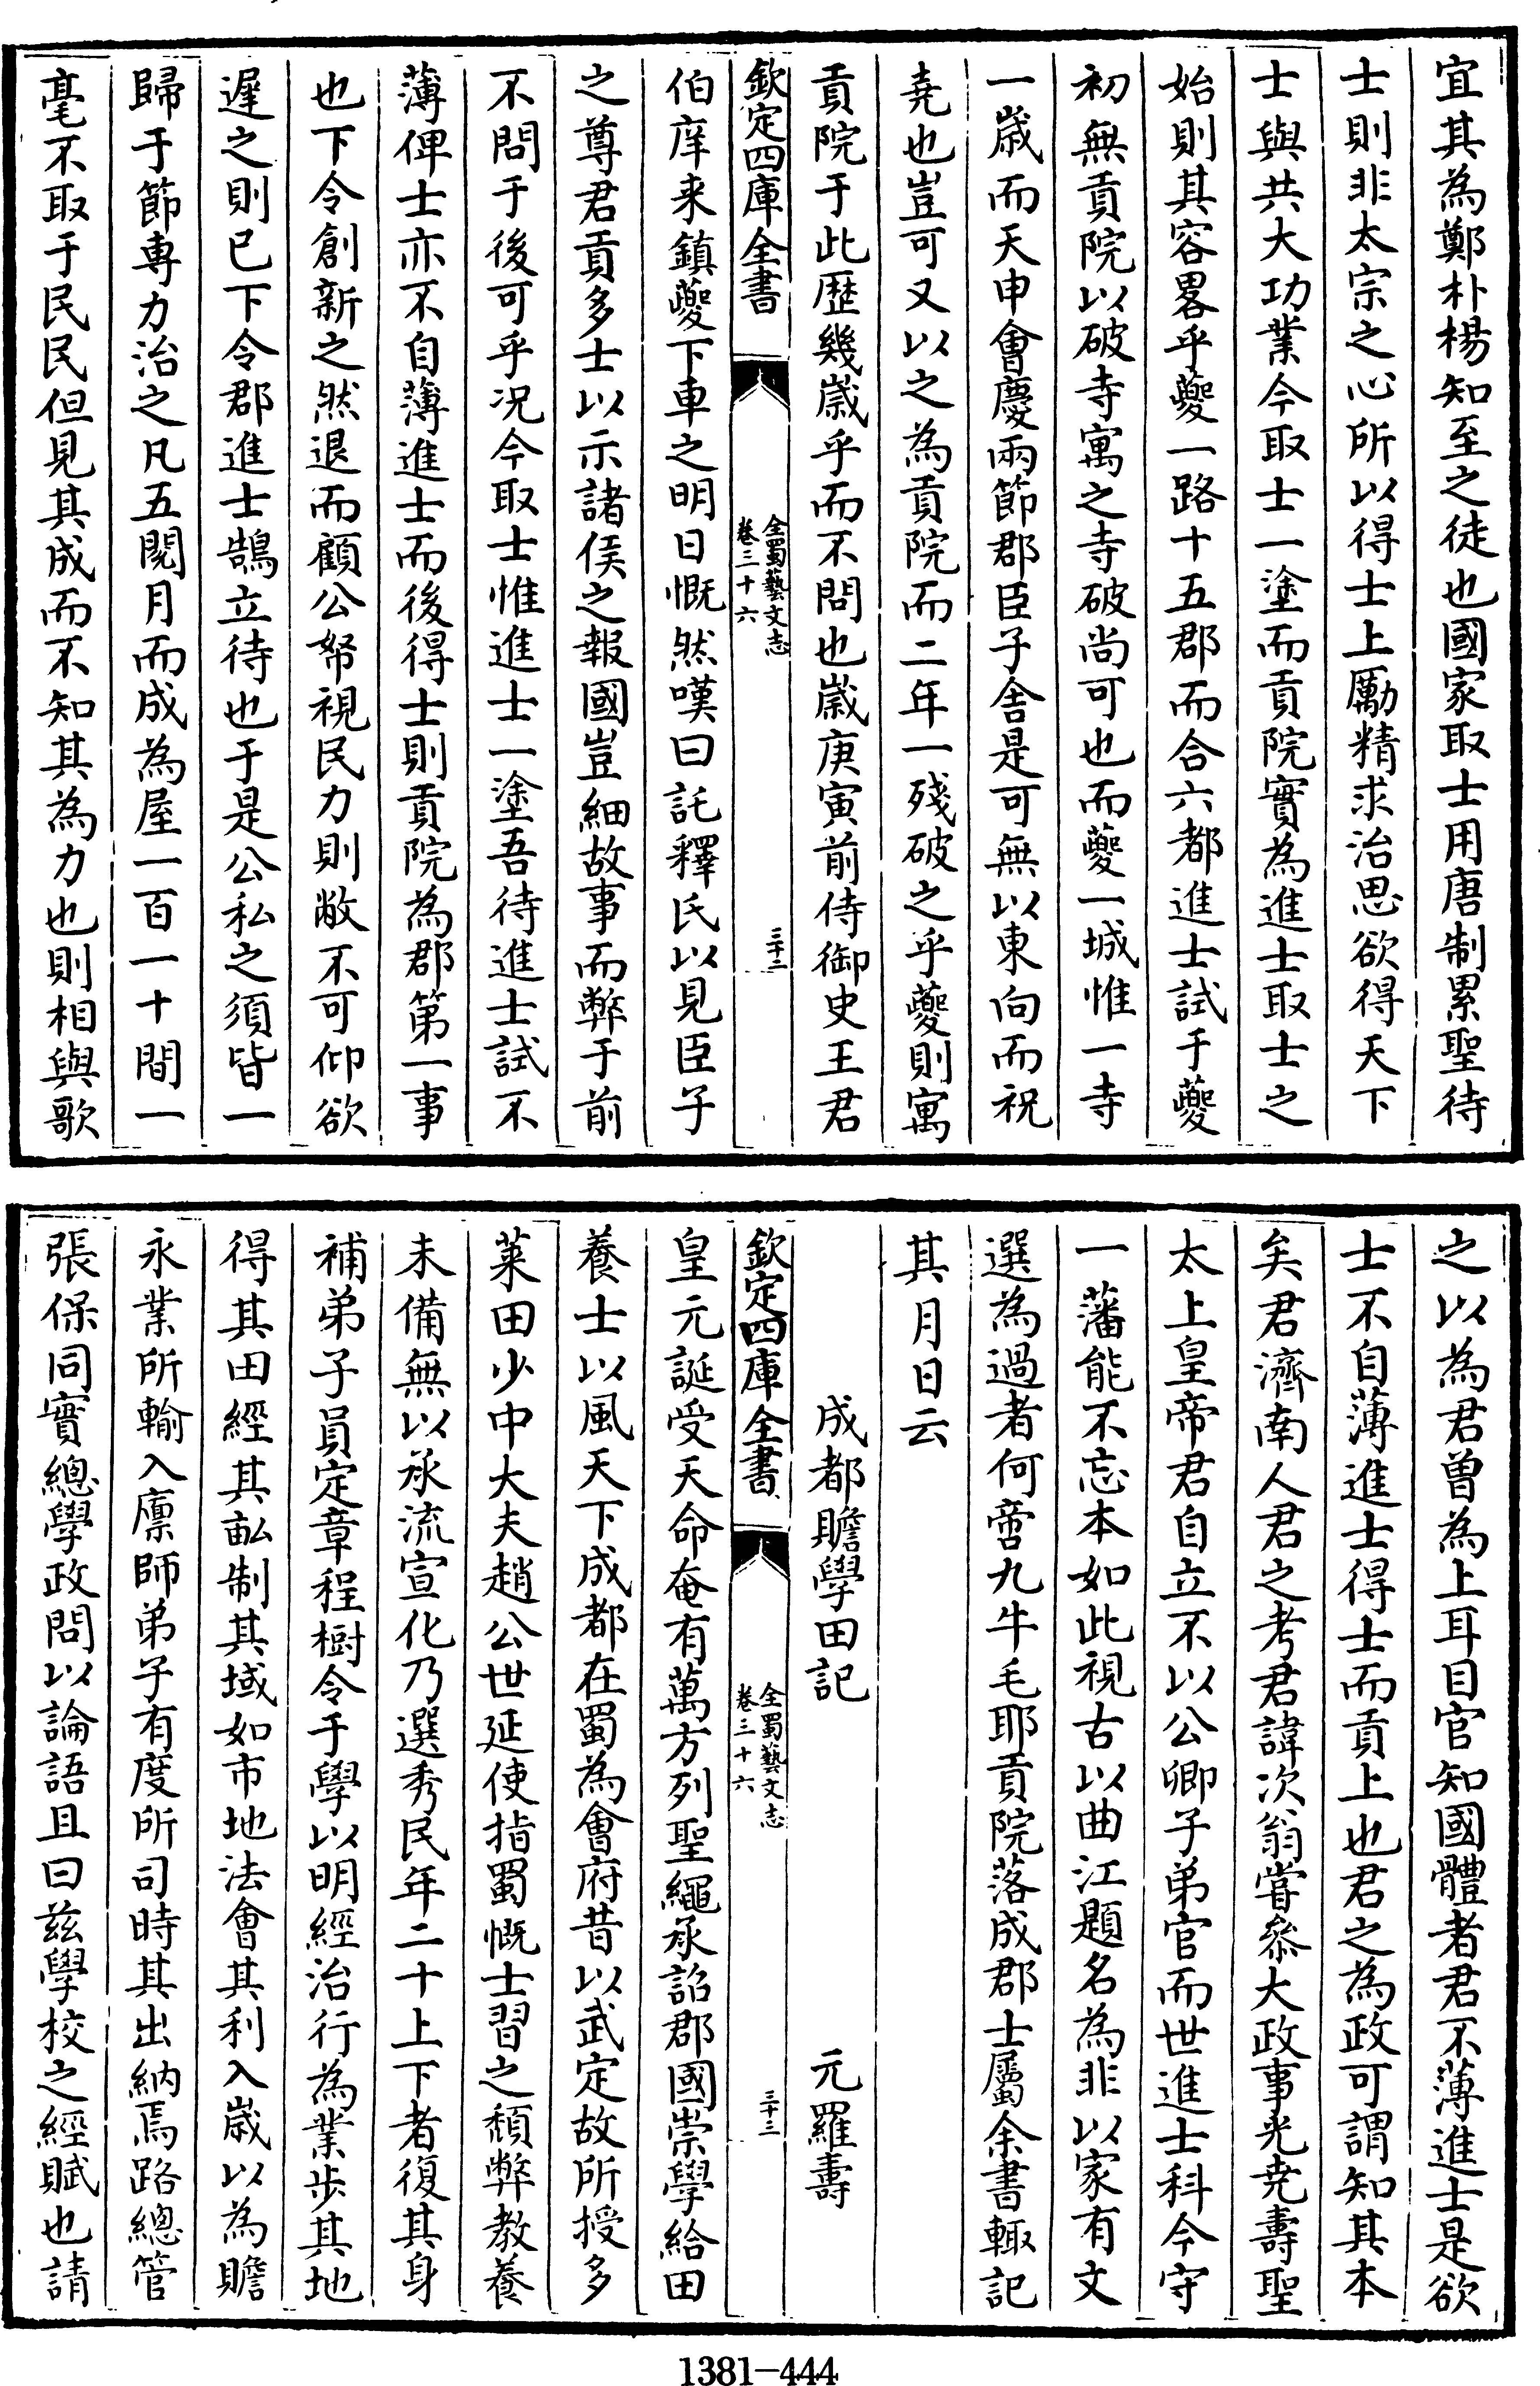 宜其為鄭朴楊知至之徒也國家取士用唐制累聖待
士則非太宗之心所以得士上勵精求治思欲得天下
士與共大功業今取士一塗而貢院實為進士取士之
始則其容畧乎夔一路十五郡而合六都進士試于夔
初無貢院以破寺寓之寺破尚可也而夔一城惟一寺
一歲而天申會慶兩節郡臣子舍是可無以東向而祝
堯也豈可又以之為貢院而二年一殘破之乎夔則寓
貢院于此歴幾歲乎而不問也歲庚寅前侍御史王君
欽定四庫全書
全蜀藝文志
卷三十六
三十二
伯庠来鎮夔下車之明日慨然嘆曰託釋氏以見臣子
之尊君貢多士以示諸侯之報國豈細故事而弊于前
不問于後可乎况今取士惟進士一塗吾待進士試不
薄俾士亦不自薄進士而後得士則貢院為郡第一事
也下令創新之然退而顧公帑視民力則敝不可仰欲
遲之則已下令郡進士鵠立待也于是公私之須皆一
歸于節專力治之凡五閱月而成為屋一百一十間一
毫不取于民民但見其成而不知其為力也則相與歌
之以為君曽為上耳目官知國體者君不薄進士是欲
士不自薄進士得士而貢上也君之為政可謂知其本
矣君濟南人君之考君諱次翁嘗叅大政事光堯壽聖
太上皇帝君自立不以公卿子弟官而世進士科今守
一藩能不忘本如此視古以曲江題名為非以家有文
選為過者何啻九牛毛耶貢院落成郡士屬余書輙記
其月日云
成都贍學田記
元羅壽
欽定四庫全書
全蜀藝文志
卷三十六
三十三
皇元誕受天命奄有萬方列聖繩承詔郡國崇學給田
養士以風天下成都在蜀為會府昔以武定故所授多
萊田少中大夫趙公世延使指蜀慨士習之頽弊教養
未備無以承流宣化乃選秀民年二十上下者復其身
補弟子員定章程樹令于學以明經治行為業步其地
得其田經其畝制其域如市地法會其利入歲以為贍
永業所輸入廩師弟子有度所司時其出納焉路總管
張保同實總學政問以論語且曰兹學校之經賦也請
1381-444